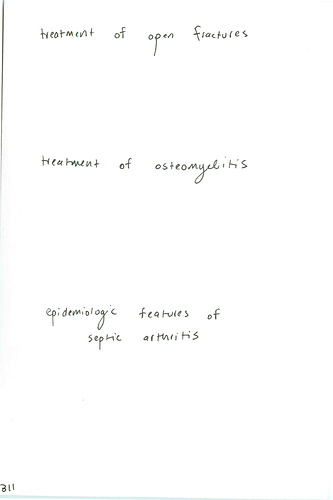 treatment of open fractures
treatment of osteomyelitis
epidemiologic features of
septic arthritis
311